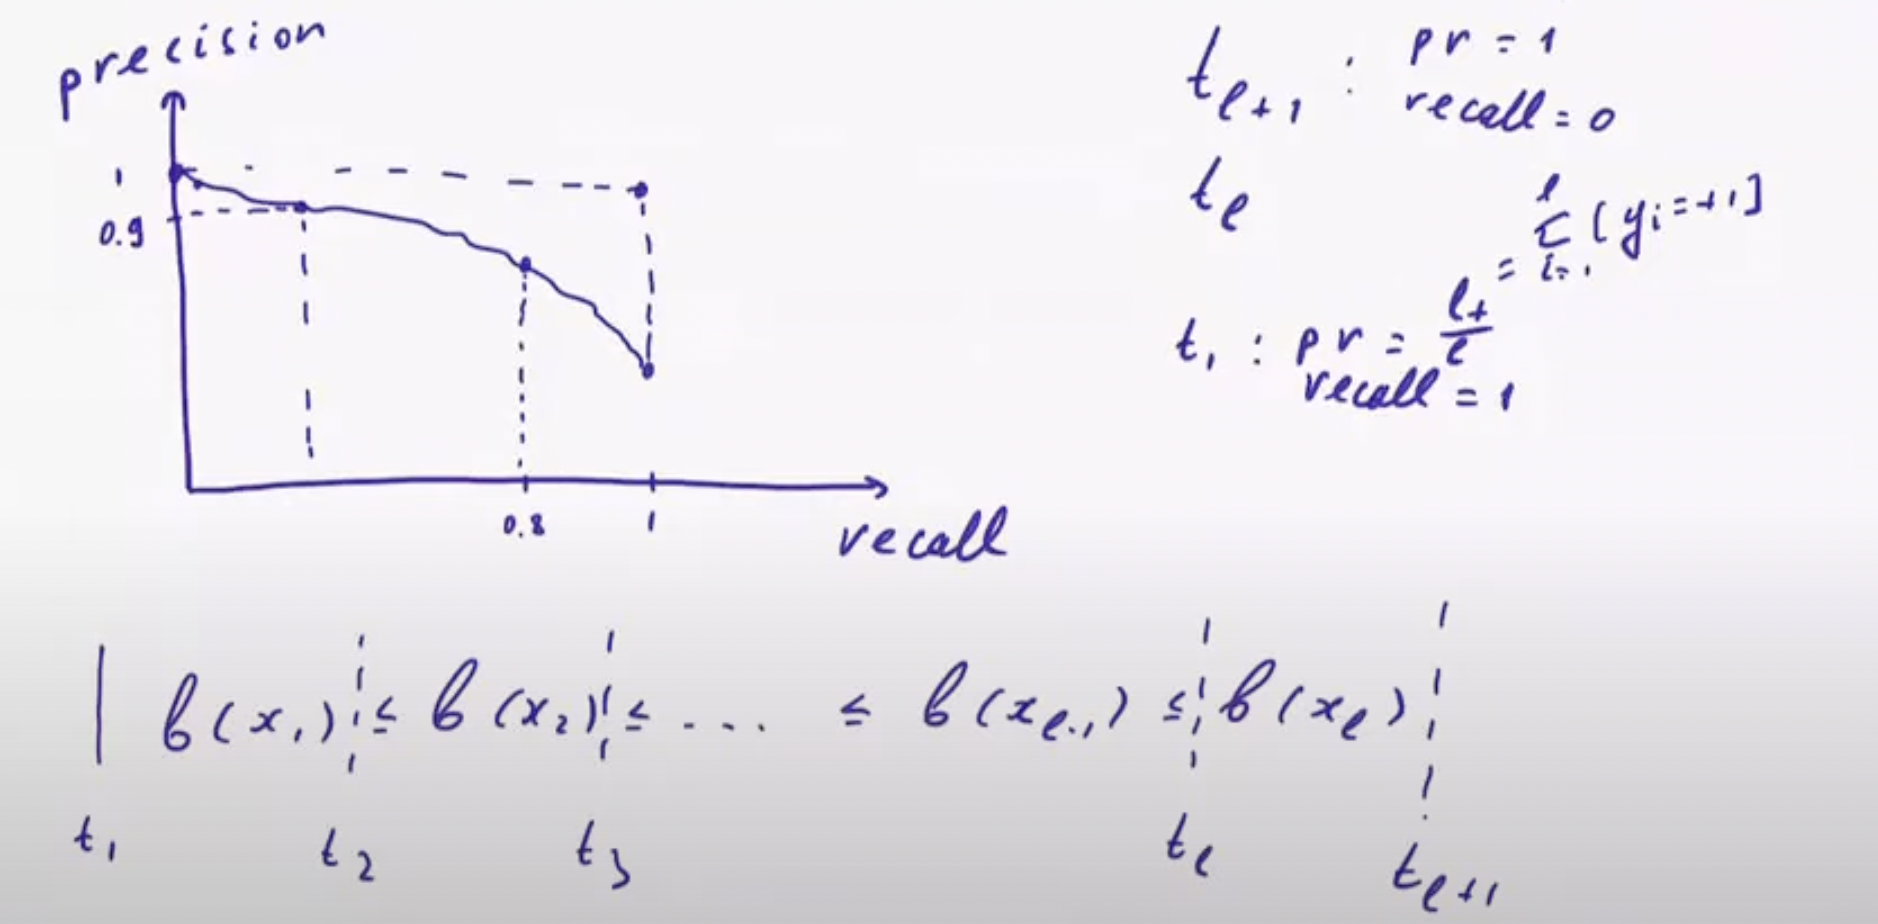 precision
1
0.9
0.8 1
recall
t_{ℓ+1} : pr = 1
recall = 0
t_ℓ
t_1 : pr = ℓ_+ / ℓ
= Σ_{i=1}^{ℓ} [y_i = +1]
recall = 1
| b(x_1) ≤ b(x_2) ≤ ... ≤ b(x_{ℓ-1}) ≤ b(x_ℓ)
t_1 t_2 t_3 t_ℓ t_{ℓ+1}